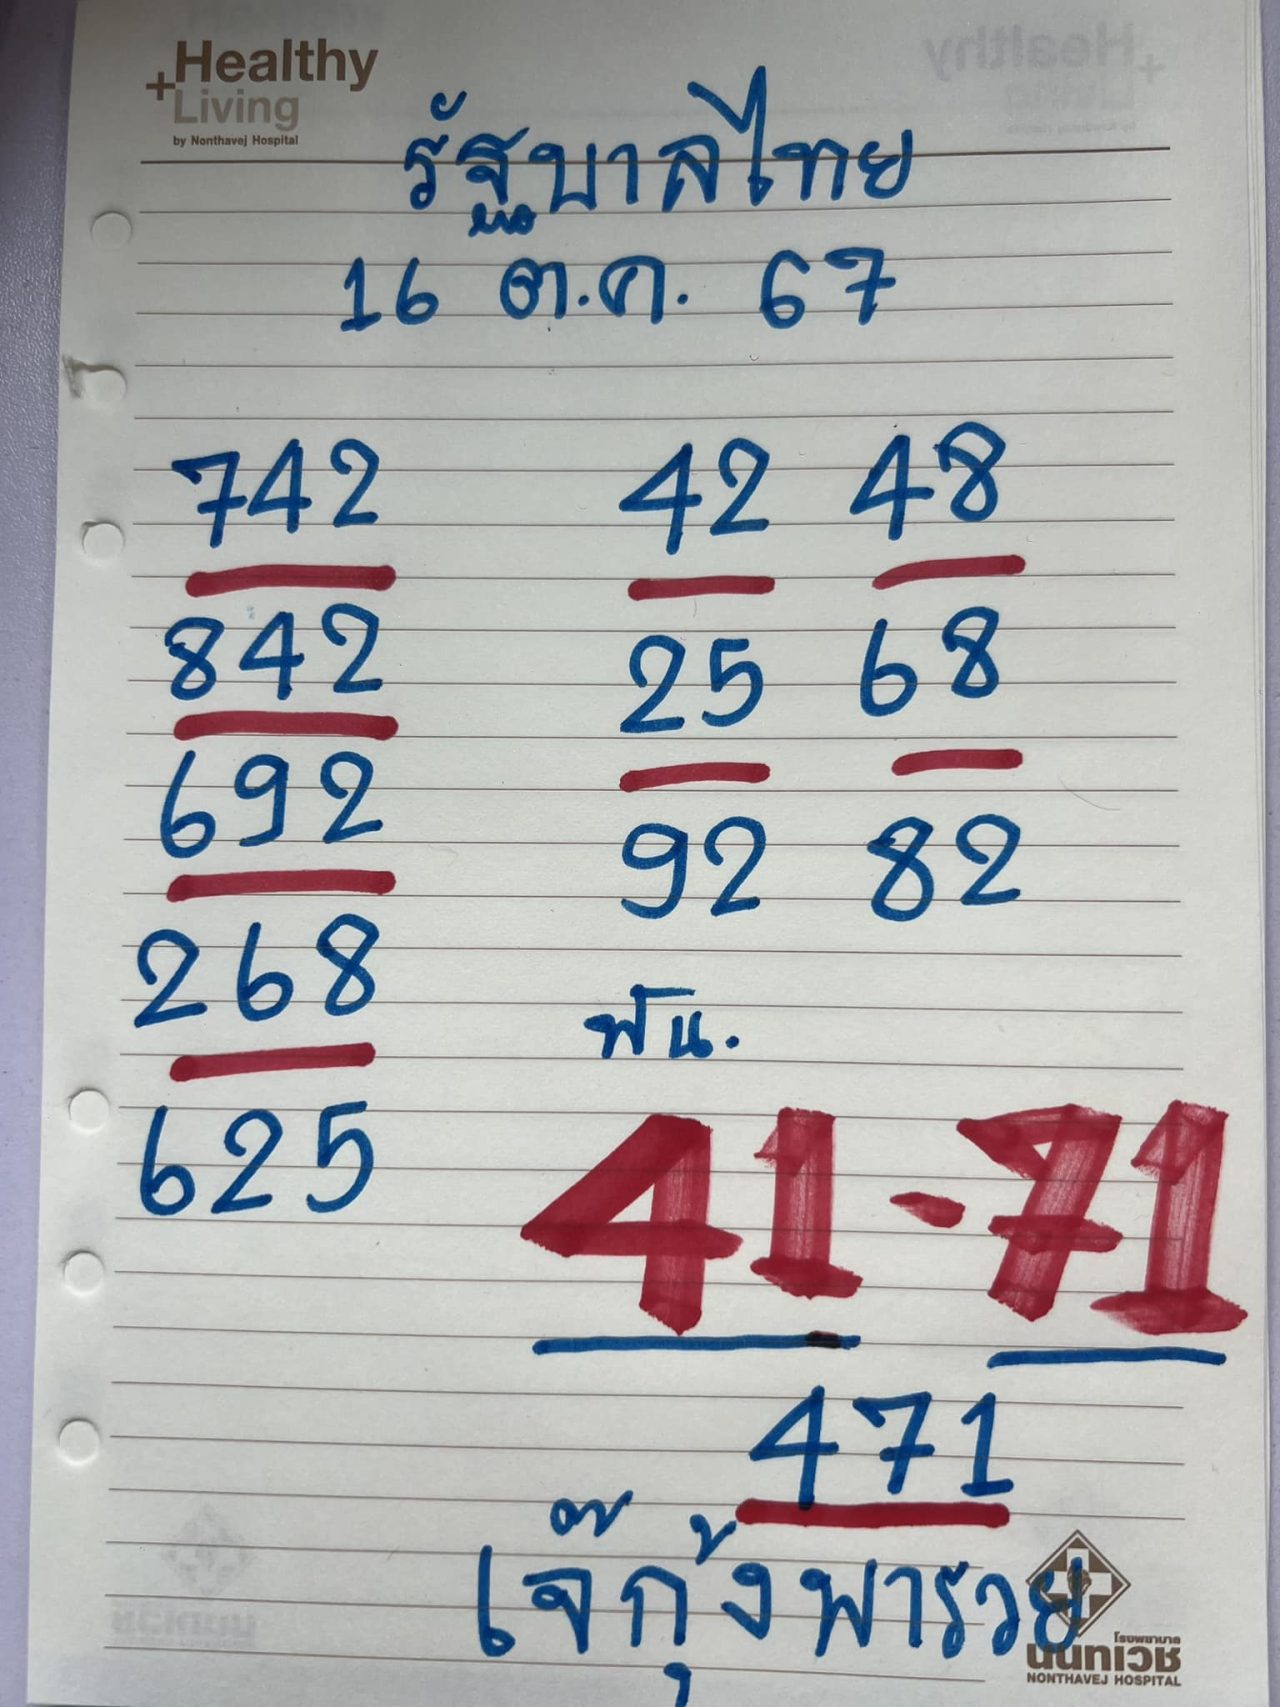 +Healthy
Living
by Nonthavej Hospital
รัฐบาลไทย
16 ต.ค. 67
742 42 48
842 25 68
692 92 82
268
ฟัน.
625 41-71
471
เจ๊กุ้งพารวย
โรงพยาบาล
นนทเวช
NONTHAVEJ HOSPITAL